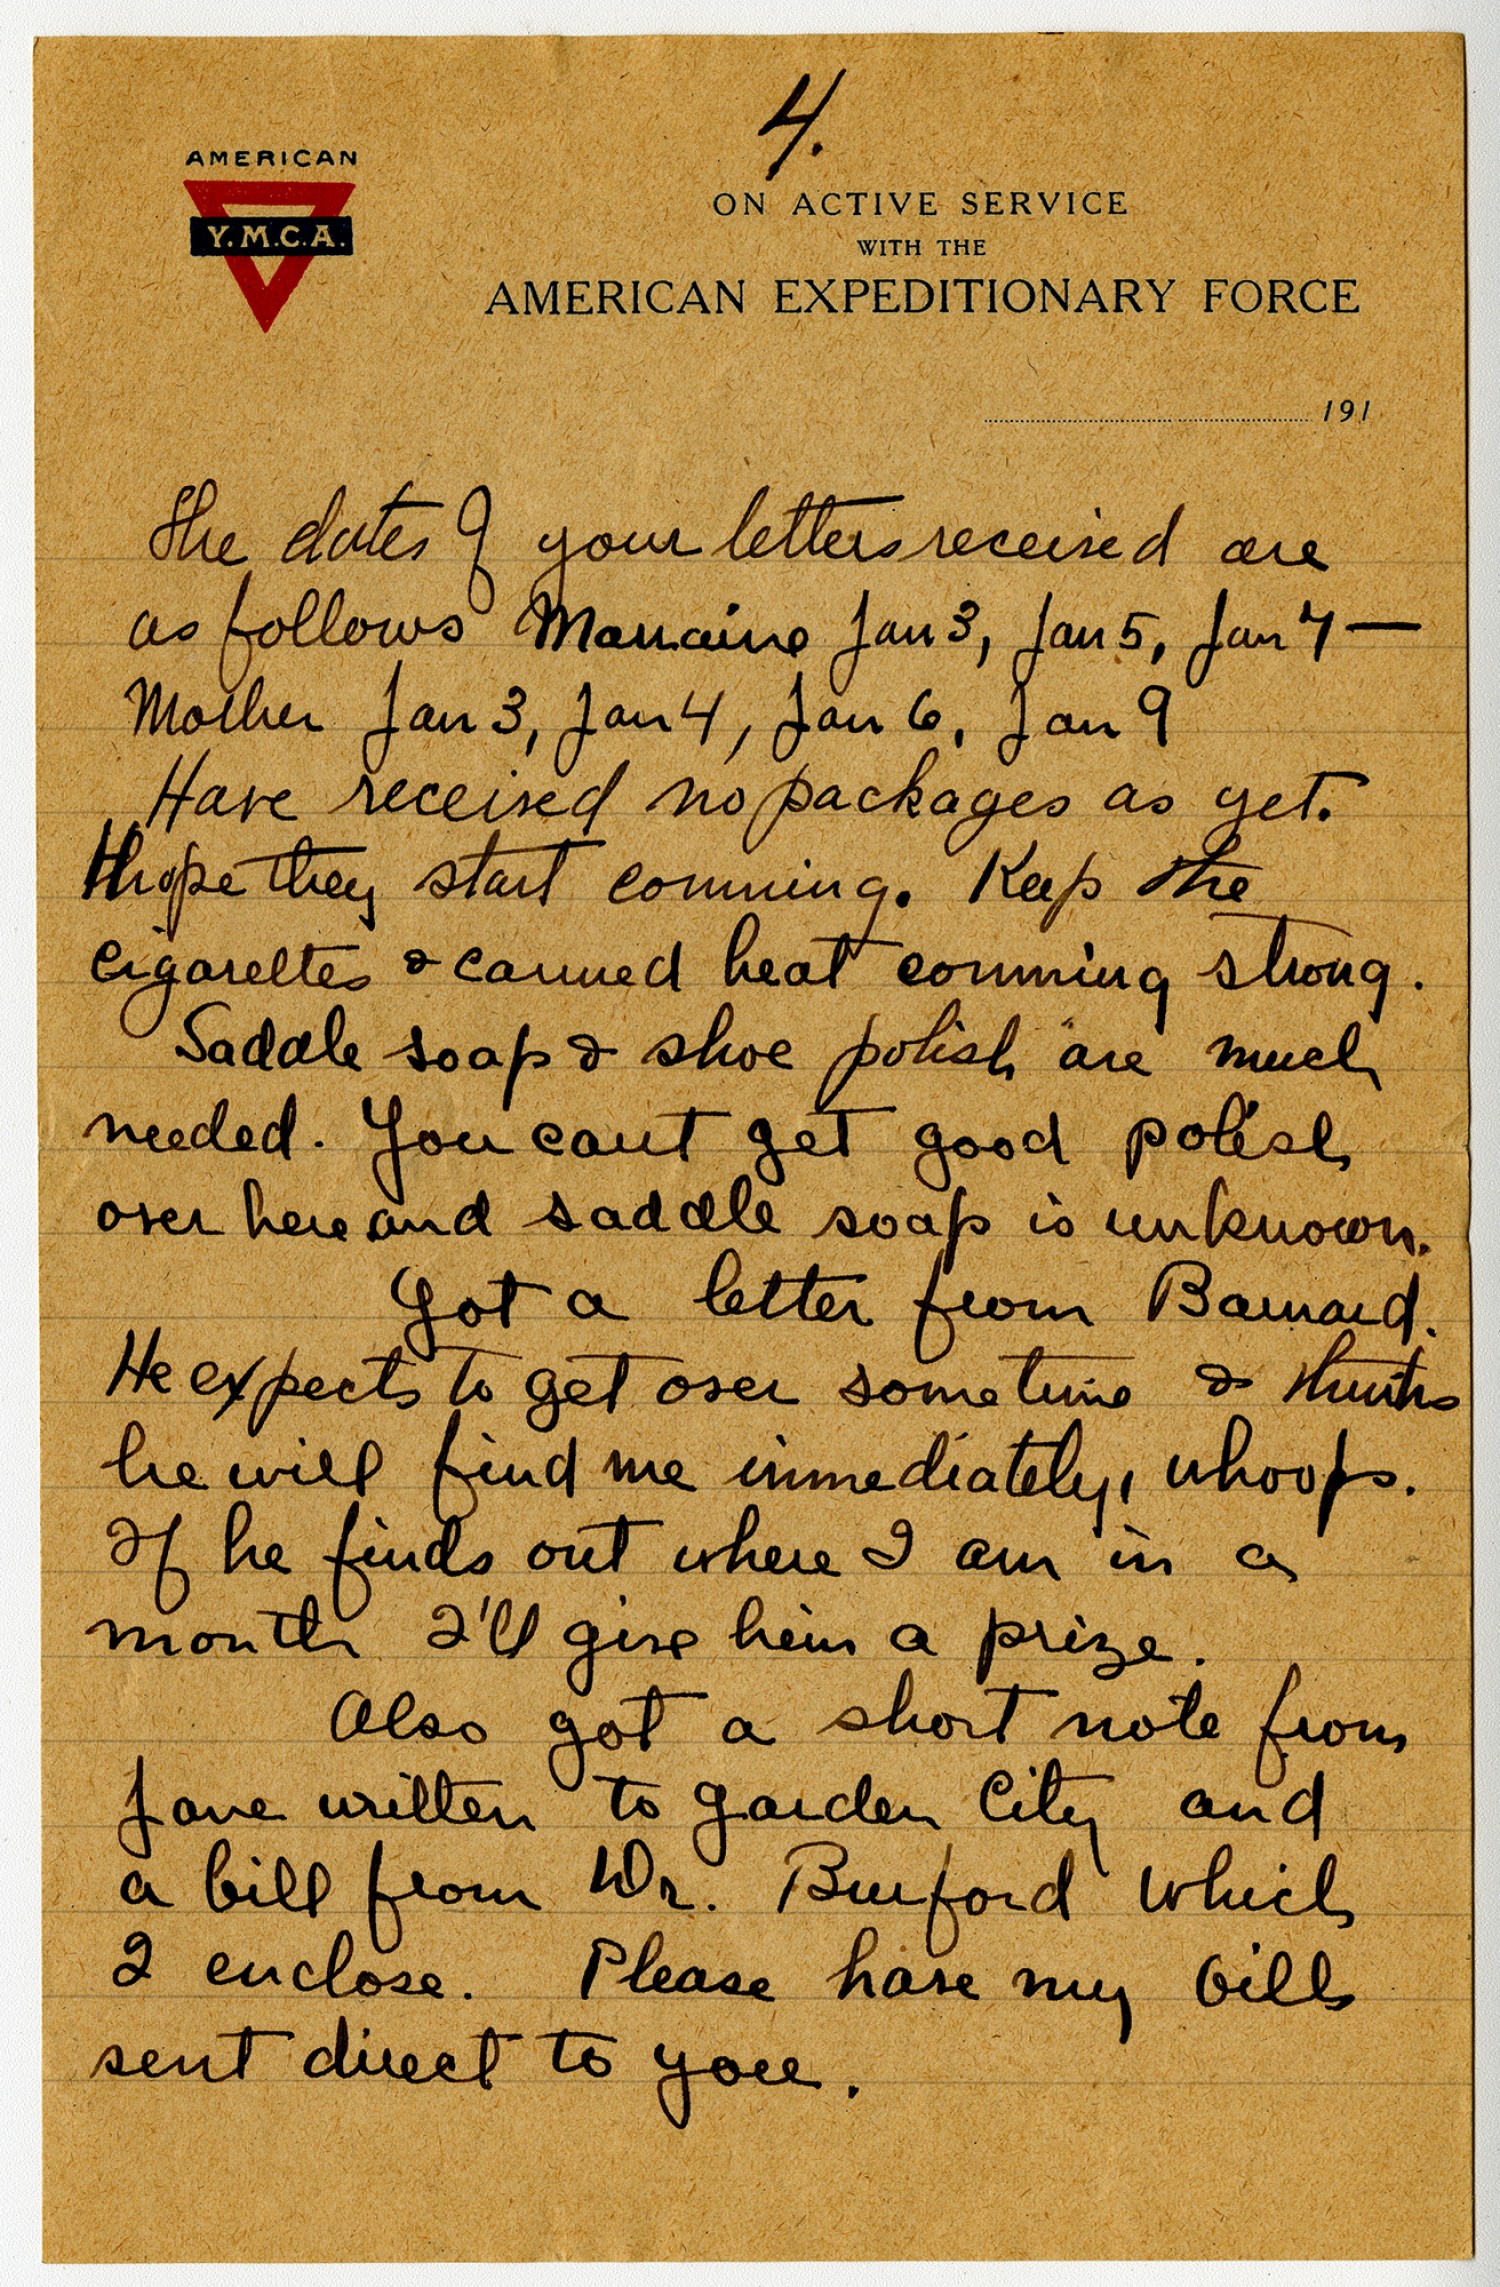 4.
AMERICAN
Y.M.C.A.
ON ACTIVE SERVICE
WITH THE
AMERICAN EXPEDITIONARY FORCE
191
The dates of your letters received are
as follows Marraine Jan 3, Jan 5, Jan 7 —
Mother Jan 3, Jan 4, Jan 6, Jan 9
Have received no packages as yet.
hope they start comming. Keep the
cigarettes & canned heat comming strong.
Saddle soap & shoe polish are much
needed. You cant get good polish
over here and saddle soap is unknown.
Got a letter from Barnard.
He expects to get over sometime & thinks
he will find me immediately, whoops.
If he finds out where I am in a
month I'll give him a prize.
Also got a short note from
Jane written to Garden City and
a bill from Dr. Buford which
I enclose. Please have my bills
sent direct to you.